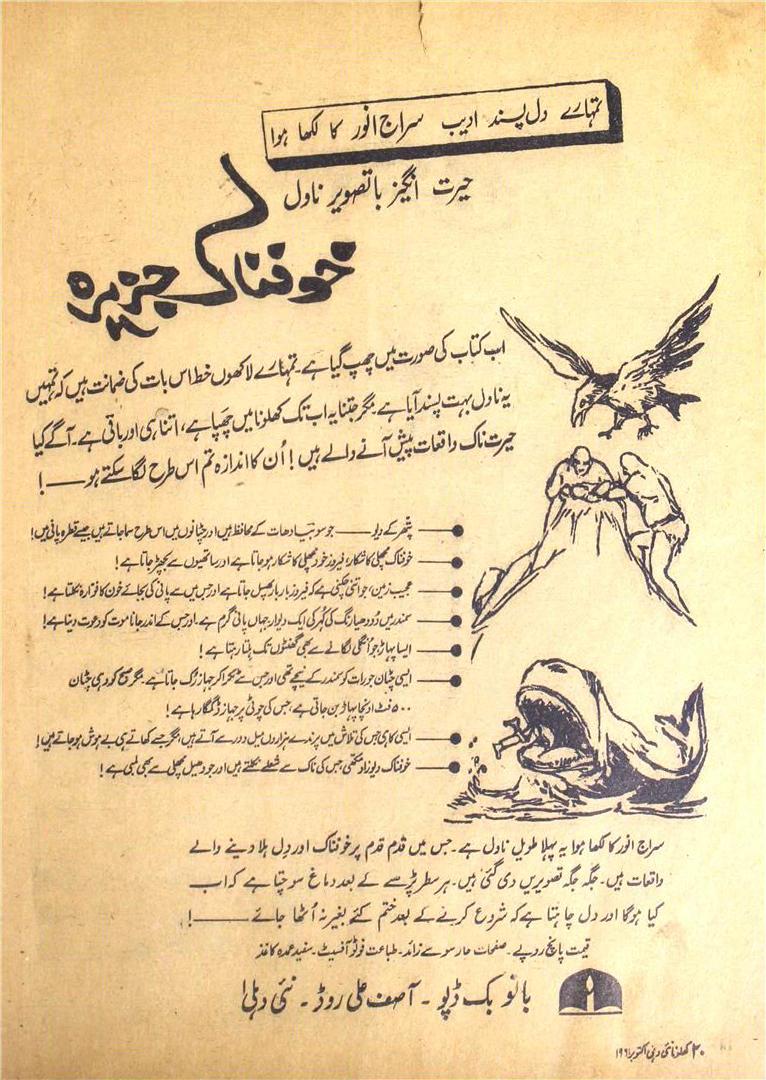 تمہارے دل پسند ادیب سراج انور کا لکھا ہوا
حیرت انگیز باتصویر ناول
خوفناک جزیرہ
اب کتاب کی صورت میں چھپ گیا ہے۔ تمہارے لاکھوں خط اس بات کی ضمانت ہیں کہ تمہیں
یہ ناول بہت پسند آیا ہے۔ مگر جتنا یہ اب تک کھلونا میں چھپا ہے، اتنا ہی اور باقی ہے۔ آگے کیا
حیرت ناک واقعات پیش آنے والے ہیں! اُن کا اندازہ تم اس طرح لگا سکتے ہو——!
پتھر کے دیو—— جو سوبیا دھات کے محافظ ہیں اور چٹانوں میں اس طرح سما جاتے ہیں جیسے قطرہ پانی میں!
خوفناک مچھلی کا شکار، فیروز خود مچھلی کا شکار ہو جاتا ہے اور ساتھیوں سے بچھڑ جاتا ہے!
عجیب زمین، جو اتنی چکنی ہے کہ فیروز بار بار پھسل جاتا ہے اور جس میں سے پانی کی بجائے خون کا فوّارہ نکلتا ہے!
سمندر میں دُودھیا رنگ کی کُہر کی ایک دیوار جہاں پانی گرم ہے۔ اور جس کے اندر جانا موت کو دعوت دینا ہے!
ایسا پہاڑ جو اُنگلی لگانے سے بھی گھنٹوں تک ہلتا رہتا ہے!
ایسی چٹان جو رات کو سمندر کے نیچے تھی اور جس سے ٹکرا کر جہاز رُک جاتا ہے۔ مگر صبح کو وہی چٹان
۵۰۰ فٹ اونچا پہاڑ بن جاتی ہے، جس کی چوٹی پر جہاز ڈگمگا رہا ہے!
ایسی کائی جس کی تلاش میں پرندے ہزاروں میل دور سے آتے ہیں، مگر جسے کھاتے ہی بے ہوش ہو جاتے ہیں!
خوفناک دیوزاد مکھی، جس کی ناک سے شعلے نکلتے ہیں اور جو وھیل مچھلی سے بھی لمبی ہے!
سراج انور کا لکھا ہوا یہ پہلا طویل ناول ہے۔ جس میں قدم قدم پر خوفناک اور دِل ہلا دینے والے
واقعات ہیں۔ جگہ جگہ تصویریں دی گئی ہیں۔ ہر سطر پڑھنے کے بعد دماغ سوچتا ہے کہ اب
کیا ہوگا اور دل چاہتا ہے کہ شروع کرنے کے بعد ختم کئے بغیر نہ اُٹھا جائے——!
قیمت پانچ روپے۔ صفحات چار سو سے زائد۔ طباعت فوٹو آفسیٹ۔ سفید عمدہ کاغذ
بانو بک ڈپو۔ آصف علی روڈ۔ نئی دہلی ا
۲۰ کھلونا نئی دہلی اکتوبر